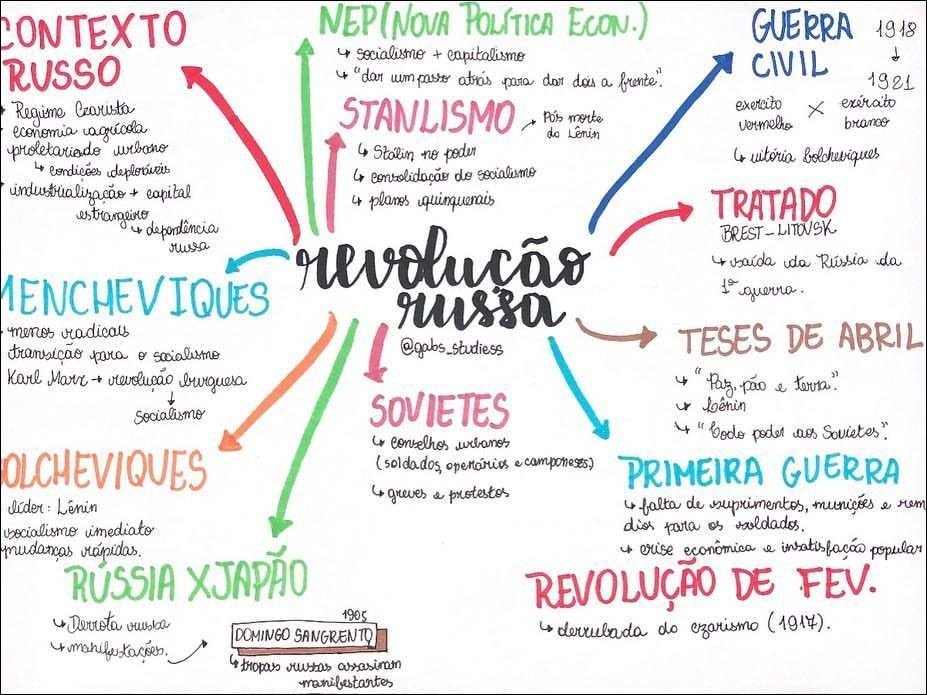 CONTEXTO
RUSSO
Regime Czarista
economia agrícola
proletariado urbano
↳ condições deploráveis
industrialização + capital
estrangeiro
↳ dependência
russa
NEP (NOVA POLÍTICA ECON.)
↳ socialismo + capitalismo
↳ "dar um passo atrás para dar dois a frente".
STANLISMO
Pós morte
do Lênin
↳ Stálin no poder
↳ consolidação do socialismo
↳ planos quinquenais
GUERRA
CIVIL
1918
↓
1921
exército
vermelho
X
exército
branco
↳ vitória bolcheviques
TRATADO
BREST-LITOVSK
↳ saída da Rússia da
1ª guerra.
revolução
russa
@gabs_studiess
MENCHEVIQUES
menos radicais
transição para o socialismo
Karl Marx → revolução burguesa
↓
socialismo
TESES DE ABRIL
↳ "Paz, pão e terra".
↳ Lênin
↳ "Todo poder aos Sovietes".
SOVIETES
↳ conselhos urbanos
(soldados, operários e camponeses)
↳ greves e protestos
OLCHEVIQUES
líder: Lênin
socialismo imediato
mudanças rápidas.
PRIMEIRA GUERRA
↳ falta de suprimentos, munições e rem
dios para os soldados.
↳ crise econômica e insatisfação popular
RÚSSIA X JAPÃO
↳ Derrota russa
↳ manifestações.
1905
DOMINGO SANGRENTO
↳ tropas russas assasinam
manifestantes
REVOLUÇÃO DE FEV.
↳ derrubada do czarismo (1917).